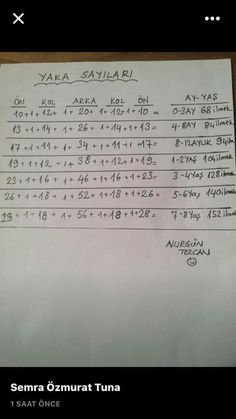 YAKA SAYILARI
ÖN KOL ARKA KOL ÖN AY-YAŞ
10+1+12+1+20+1+12+1+10= 0-3AY 68 ilmek
13+1+14+1+26+1+14+1+13= 4-8AY 84 ilmek
17+1+11+1+34+1+11+1+17= 8-12AYLIK 94 ilm
19+1+12+1+38+1+12+1+19= 1-2YAŞ 104 ilmek
23+1+16+1+46+1+16+1+23= 3-4YAŞ 128 ilmek
26+1+18+1+52+1+18+1+26= 5-6YAŞ 140 ilmek
29+1+18+1+56+1+18+1+28= 7-8YAŞ 152 ilmek
NURGÜN
TEZCAN
Semra Özmurat Tuna
1 SAAT ÖNCE